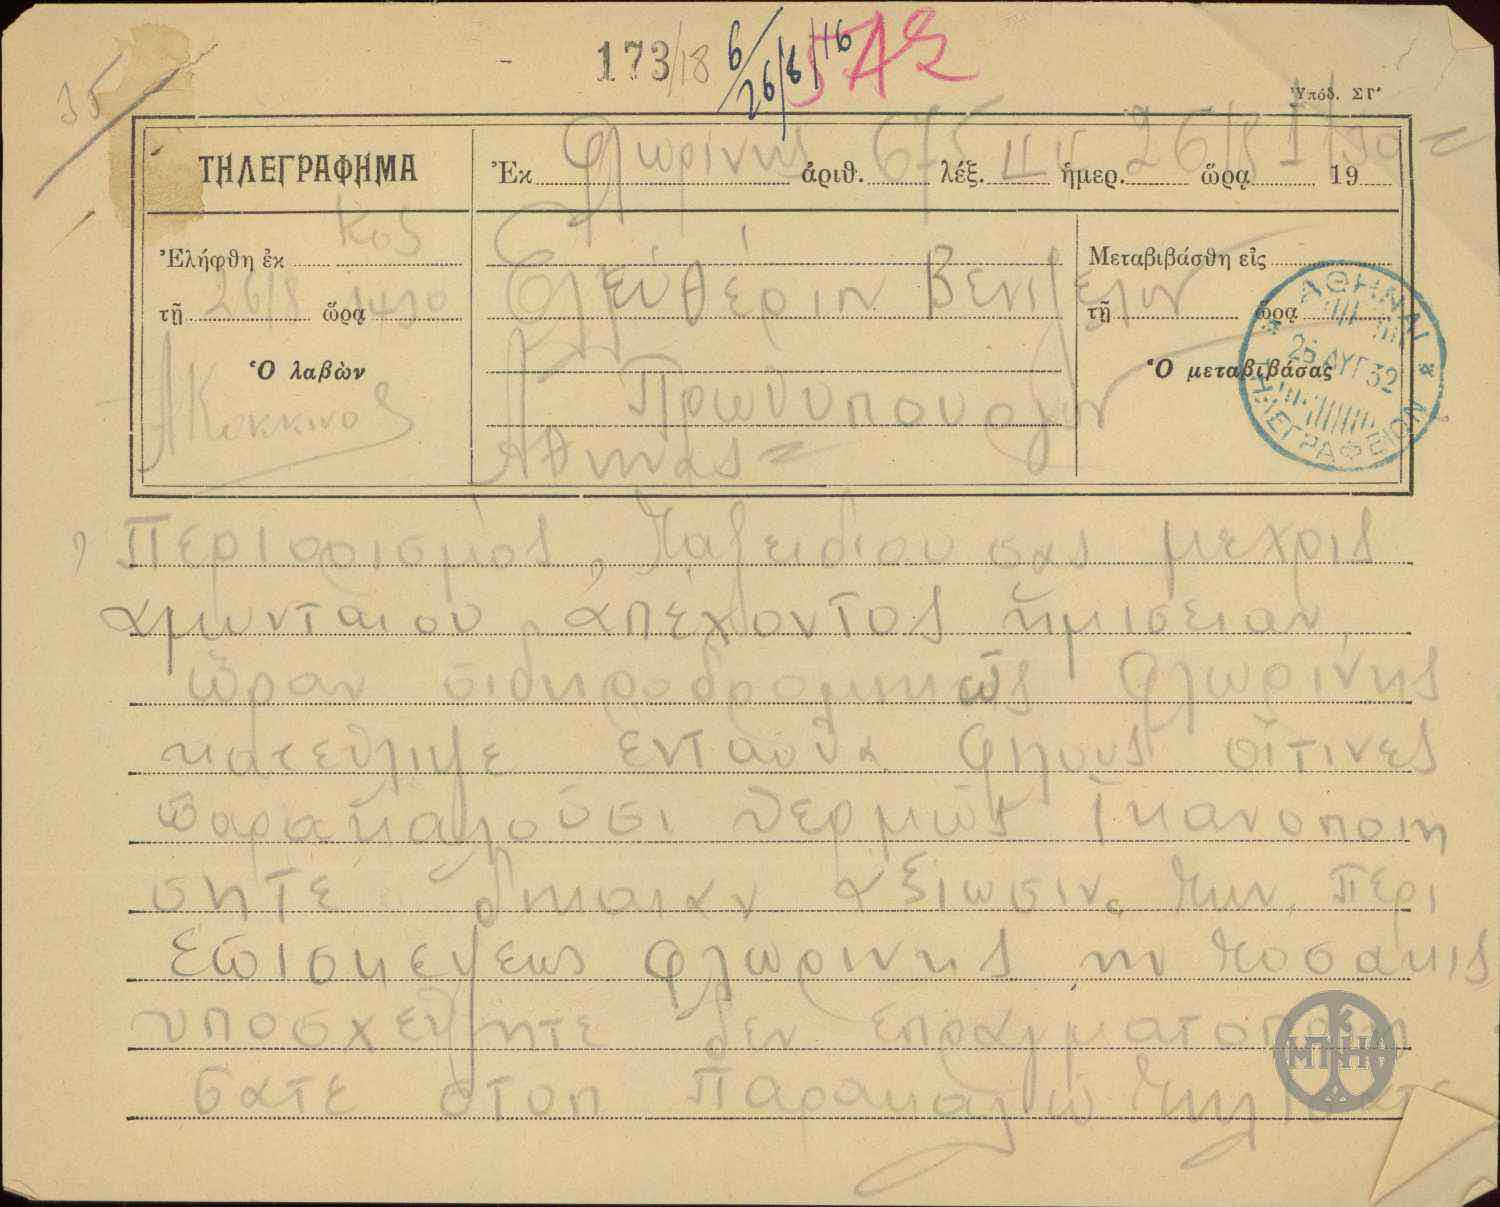 35
173/18 6/26/8/16
Ὑπόδ. ΣΓ'
ΤΗΛΕΓΡΑΦΗΜΑ
Ἐκ Φλωρίνης ἀριθ. 675 λέξ. ἡμερ. 26/8 ὥρᾳ 19
Ἐλήφθη ἐκ
τῇ 26/8 ὥρᾳ
Ὁ λαβὼν
Κοκκινος
Κος
Ελευθέριον Βενιζελον
Πρωθυπουργον
Αθηνας =
Μεταβιβάσθη εἰς
τῇ ὥρᾳ
Ὁ μεταβιβάσας
ΑΘΗΝΑΙ
26 ΑΥΓ 32
ΤΗΛΕΓΡΑΦΕΙΟΝ
Περιορισμός ταξειδιου σας μεχρις
αμυνταιου απέχοντος ημισειαν
ώραν σιδηροδρομικώς Φλωρίνης
κατεθλιψε ενταυθα φιλους οίτινες
παρακαλούσι θερμώς ικανοποιη
σητε δικαιαν αξιωσιν των περι
επισκεψεως φλωρινης ην τοσακις
υποσχεθητε δεν επραγματοποιη
σατε στοπ Παρακαλω
ΜΠΗΚ